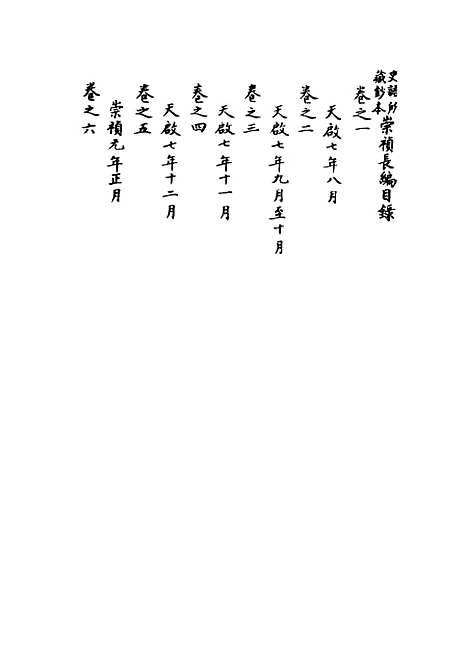 史語所藏鈔本崇禎長編目錄
卷之一
天啟七年八月
卷之二
天啟七年九月至十月
卷之三
天啟七年十一月
卷之四
天啟七年十二月
卷之五
崇禎元年正月
卷之六